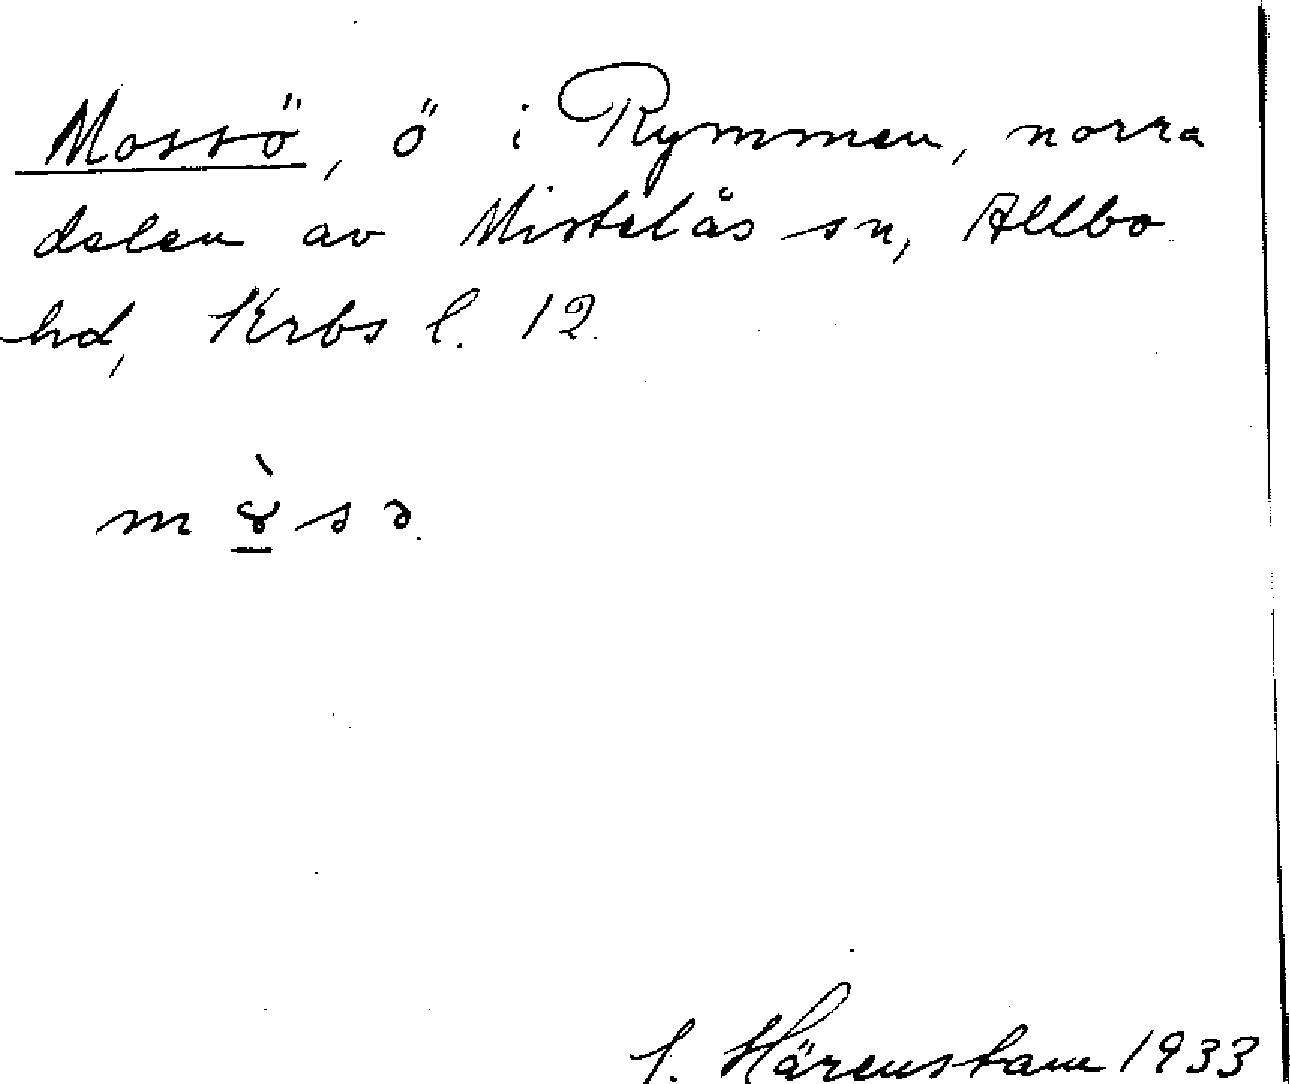 Mossö, ö i Rymmen, norra
delen av Mistelås sn, Allbo
hd, Krbs l. 12.
Härenstam 1933